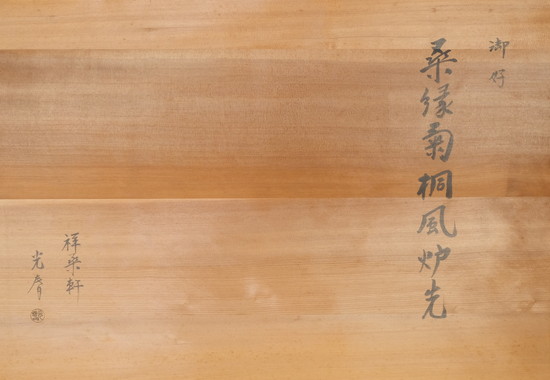 御好
桑縁菊桐風炉先
祥楽軒
光斎